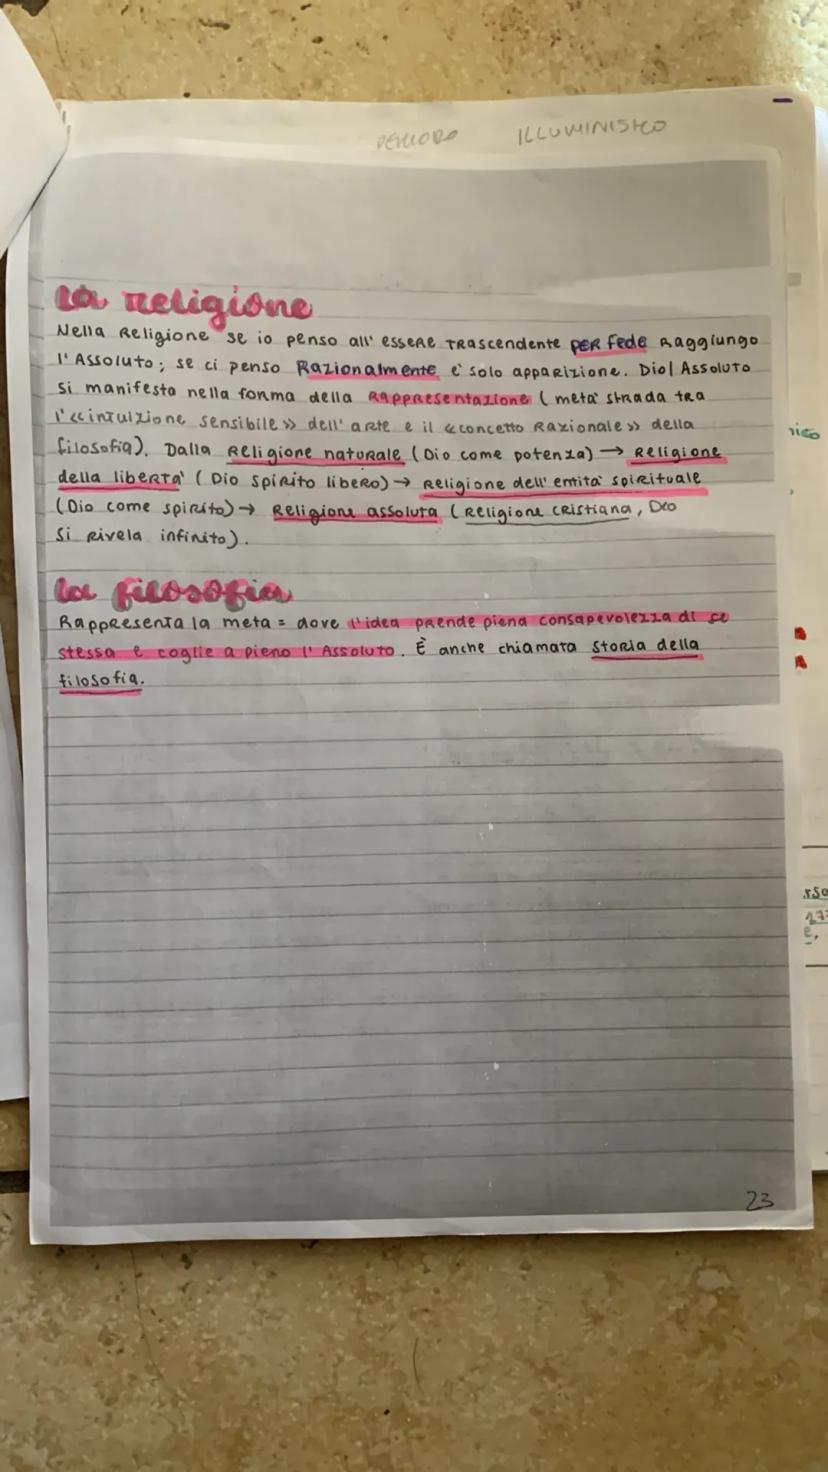 PERIODO ILLUMINISTICO
La religione
Nella Religione se io penso all' essere trascendente per fede raggiungo
l'Assoluto; se ci penso Razionalmente è solo apparizione. Dio/Assoluto
si manifesta nella forma della Rappresentazione (metà strada tra
l'«intuizione sensibile» dell'arte e il «concetto Razionale» della
filosofia). Dalla Religione naturale (Dio come potenza) → Religione
della libertà (Dio spirito libero) → Religione dell'entità spirituale
(Dio come spirito) → Religione assoluta (Religione cristiana, Dio
si rivela infinito).
La filosofia
Rappresenta la meta = dove l'idea prende piena consapevolezza di se
stessa e coglie a pieno l'Assoluto. È anche chiamata storia della
filosofia.
23